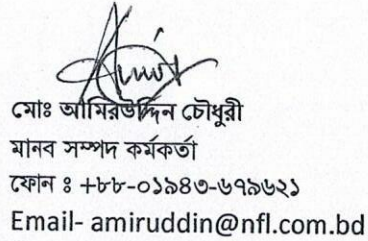 মোঃ আমিরউদ্দিন চৌধুরী
মানব সম্পদ কর্মকর্তা
ফোন ঃ +৮৮-০১৯৪৩-৬৭৯৬২১
Email- amiruddin@nfl.com.bd